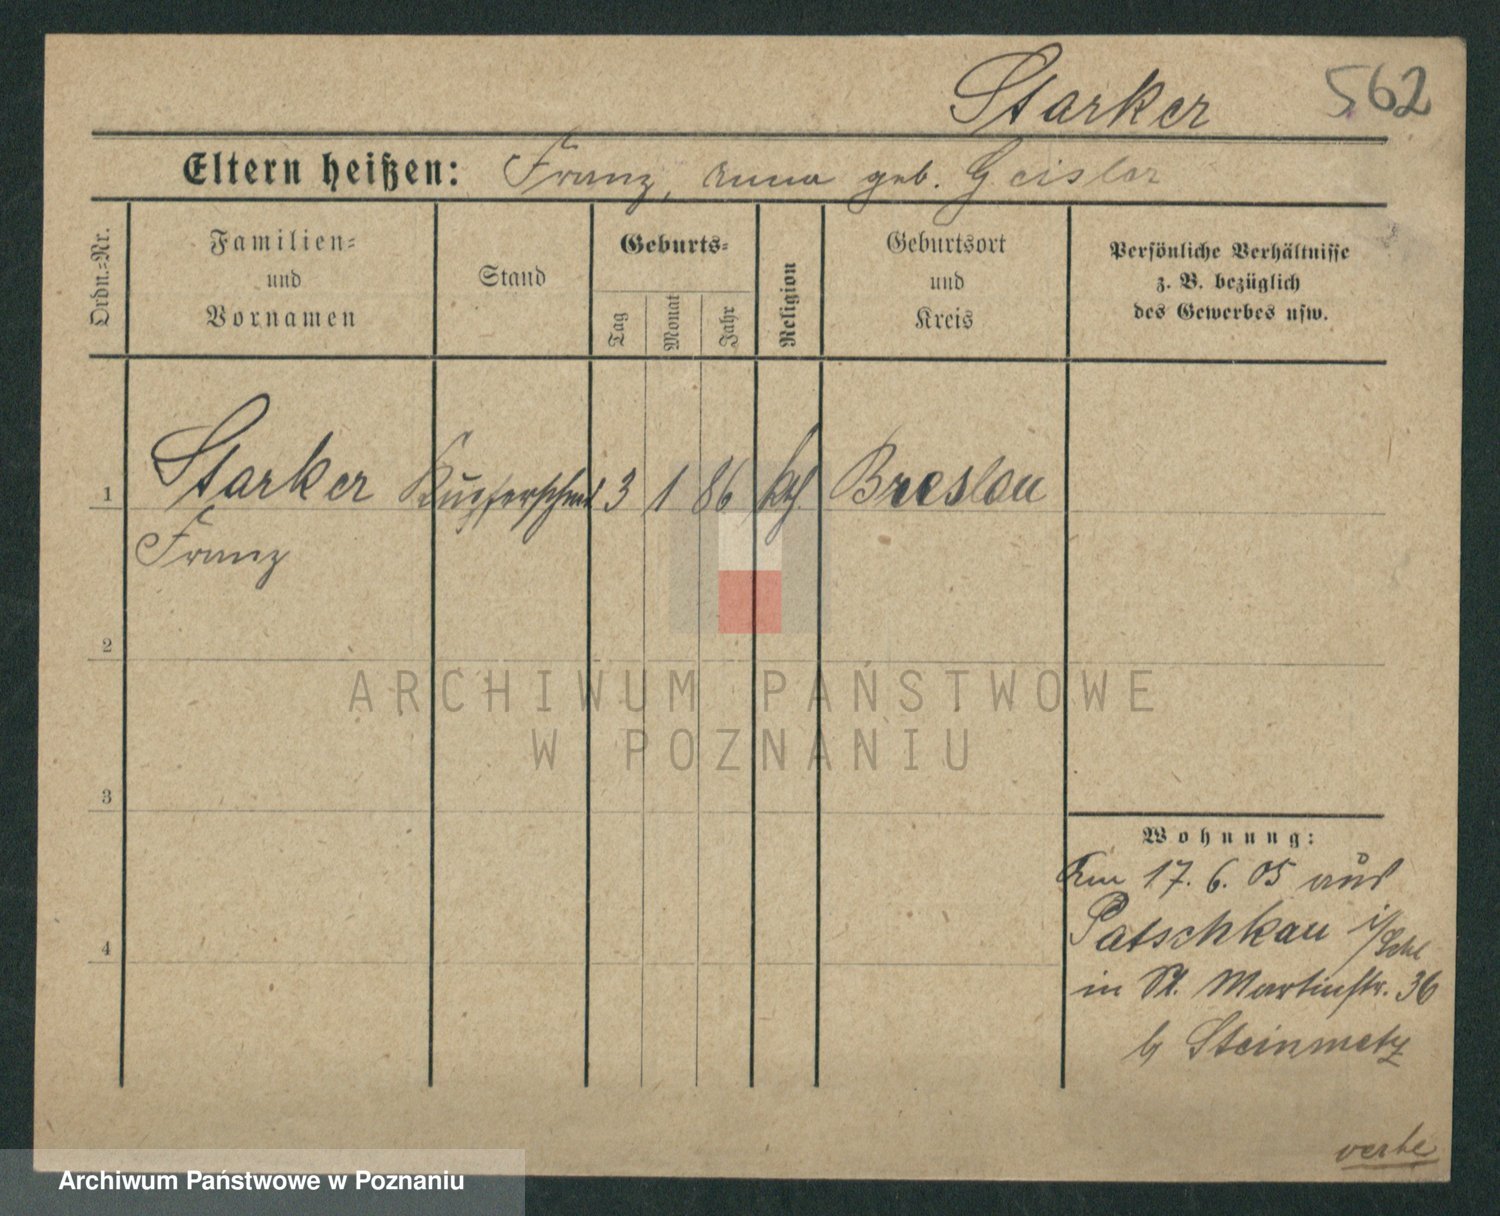 Starker 562
Eltern heißen: Franz, Anna geb. Geisler
Ordn.=Nr.
Familien=
und
Vornamen
Stand
Geburts=
Tag
Monat
Jahr
Religion
Geburtsort
und
Kreis
Persönliche Verhältnisse
z. B. bezüglich
des Gewerbes usw.
1 Starker Kupferschmd 3 1 86 kth. Breslau
Franz
2
3
4
Wohnung:
Am 17. 6. 05 aus
Patschkau i/Schl
in St. Martinstr. 36
b/ Steinmetz
ARCHIWUM PAŃSTWOWE
W POZNANIU
Archiwum Państwowe w Poznaniu